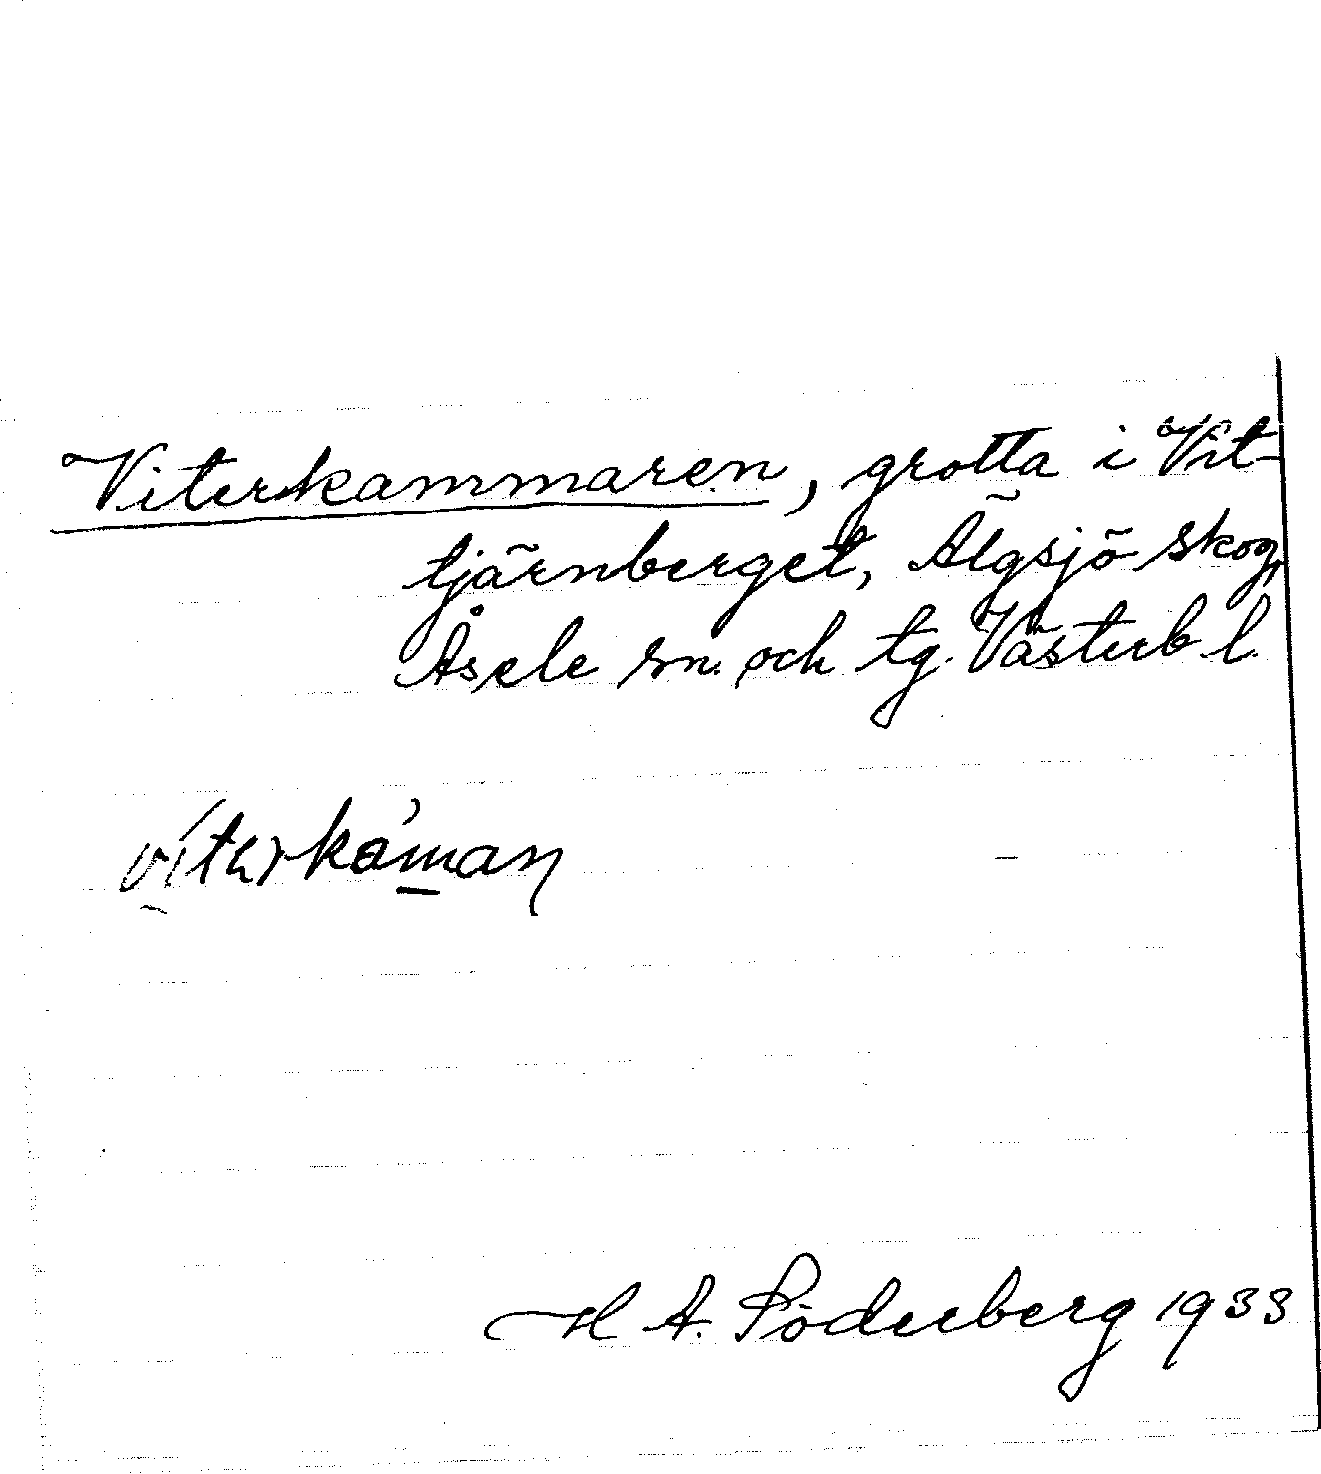 Viterkammaren, grotta i Vit-
tjärnberget, Älgsjö skog,
Åsele sn. och tg. Västerb l.
viterkáman
H A. Söderberg 1933